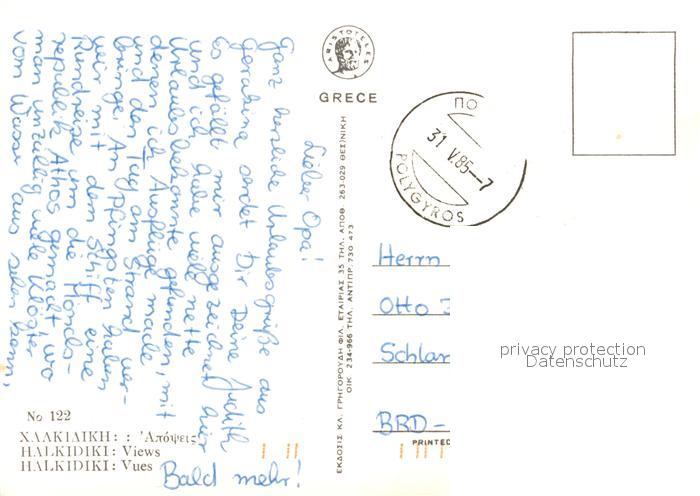 Lieber Opa!
Ganz herzliche Urlaubsgrüße aus
Gerakina sendet Dir Deine Judith
Es gefällt mir ausgezeichnet hier
und ich habe viele nette
Urlaubsbekannte gefunden, mit
denen ich Ausflüge mache
und den Tag am Strand ver-
bringe. An Pfingsten haben
wir mit dem Schiff eine
Rundreise um die Mönchs-
republik Athos gemacht, wo
man unzählig viele Klöster
vom Wasser aus sehen kann,
Bald mehr!
No 122
ΧΑΛΚΙΔΙΚΗ: : Ἀπόψεις
HALKIDIKI: Views
HALKIDIKI: Vues
ARISTOTELES
GRECE
ΕΚΔΟΣΙΣ ΚΛ. ΓΡΗΓΟΡΟΥΔΗ ΦΙΛ. ΕΤΑΙΡΙΑΣ 35 ΤΗΛ. ΑΠΟΘ. 263-029 ΘΕΣ)ΝΙΚΗ
ΟΙΚ. 234-966 ΤΗΛ. ΑΝΤΙΠΡ. 730 473
ΠΟ
31 V.85-7
POLYGYROS
Herrn
Otto
Schlan
BRD-
PRINTED
privacy protection
Datenschutz